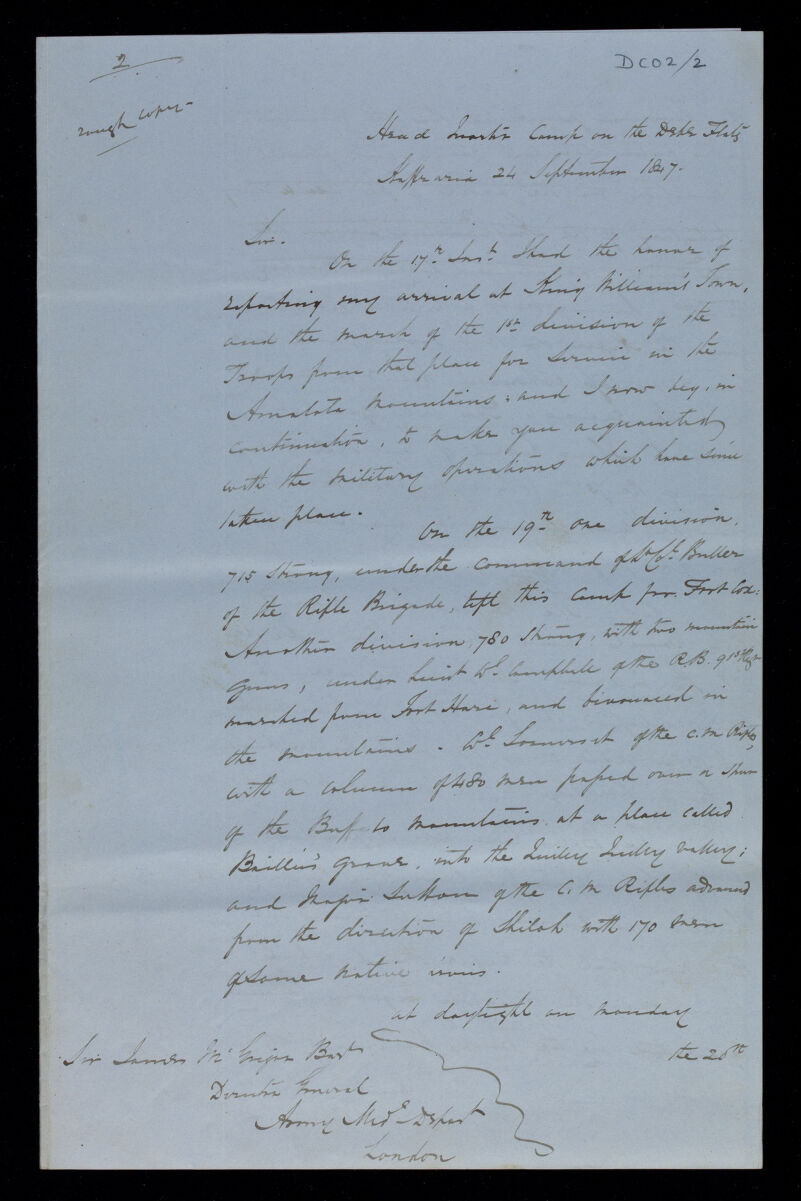 2
DC02/2
rough copy
Head Quarters Camp on the Debe Flats
Kaffraria 24 September 1847.
Sir.
On the 17th Inst I had the honor of
reporting my arrival at King William's Town,
and the march of the 1st division of the
Troops from that place for service in the
Amatola mountains: and I now beg, in
continuation, to make you acquainted
with the military operations which have since
taken place.
On the 19th one division,
715 strong, under the command of Lt Col Buller
of the Rifle Brigade, left this Camp for Fort Cox:
Another division, 780 strong, with two mountain
guns, under Lieut Col Campbell of the R.B. 91st Regt
marched from Fort Hare, and bivouaced in
the mountains. Col Somerset of the C. M Rifles,
with a column of 480 men passed over a spur
of the Buffalo mountains at a place called
Baillie's grave, into the Quilly Quilly valley;
and Major Sutton of the C. M Rifles advanced
from the direction of Shiloh with 170 men
& some native
at daylight on Monday
the 20th
Sir James McGrigor Bart
Director General
Army Medl Depart
London